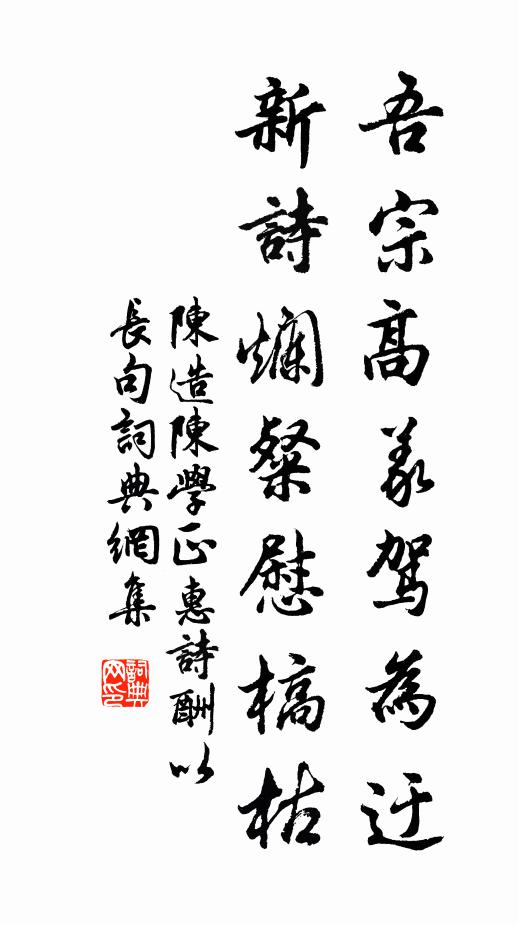 吾宗高義駕為迂
新詩爛粲慰槁枯
陳造陳學正惠詩酬以
長句詞典網集
詞典網印